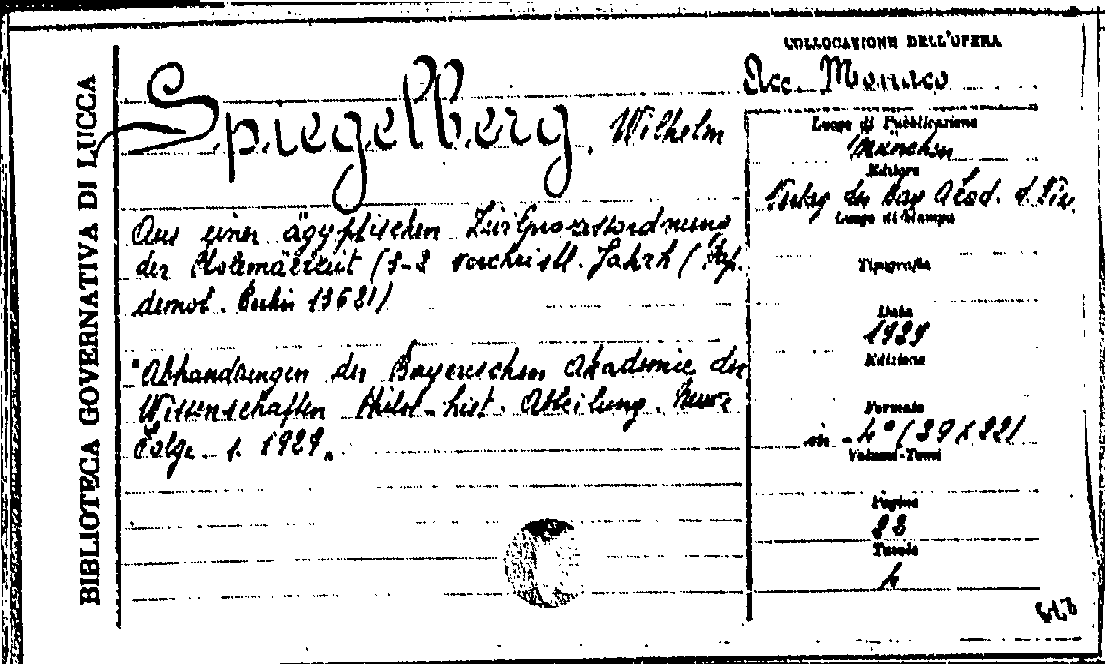 BIBLIOTECA GOVERNATIVA DI LUCCA
Spiegelberg, Wilhelm
Aus einer ägyptischen Zivilprozessordnung
der Ptolemäerzeit (3-2 vorchristl. Jahrh (Pap.
demot. Berlin 13621)
"Abhandlungen der Bayerischen Akademie der
Wissenschaften Philos-hist. Abteilung. Neue
Folge 1. 1929.
COLLOCAZIONE DELL'OPERA
Acc. Monaco
Luogo di Pubblicazione
München
Editore
Verlag der Bay Akad. d. Wis.
Luogo di Stampa
Tipografia
Data
1929
Edizione
Formato
in -4° (29 x 22)
Volumi-Tomi
Pagine
Tavole